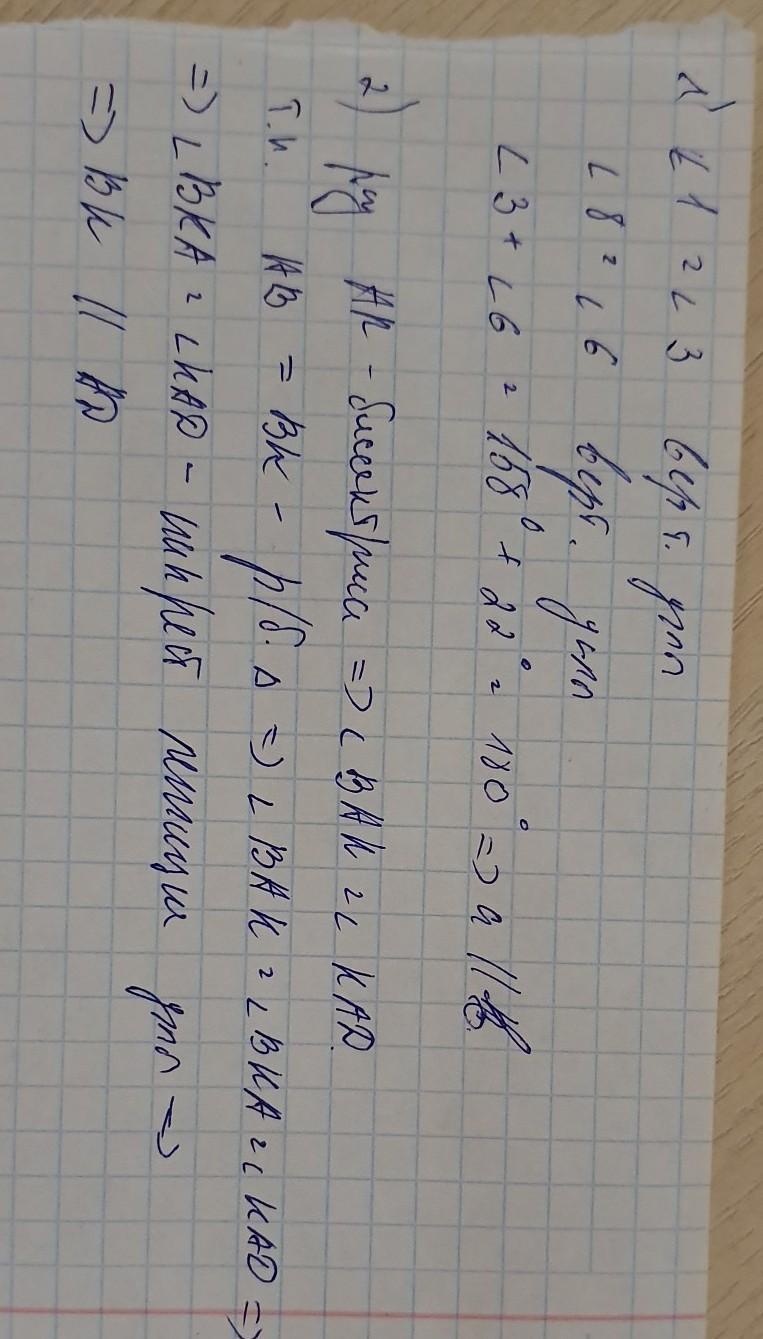 1) ∠1 = ∠3 верт. углы
∠8 = ∠6 верт. углы
∠3 + ∠6 = 158° + 22° = 180° => a || b
2) AK - биссектриса => ∠BAK = ∠KAD.
т.к. AB = BK - р/б. Δ => ∠BAK = ∠BKA = ∠KAD =>
=> ∠BKA = ∠KAD - накрест лежащие углы =>
=> BK || AD